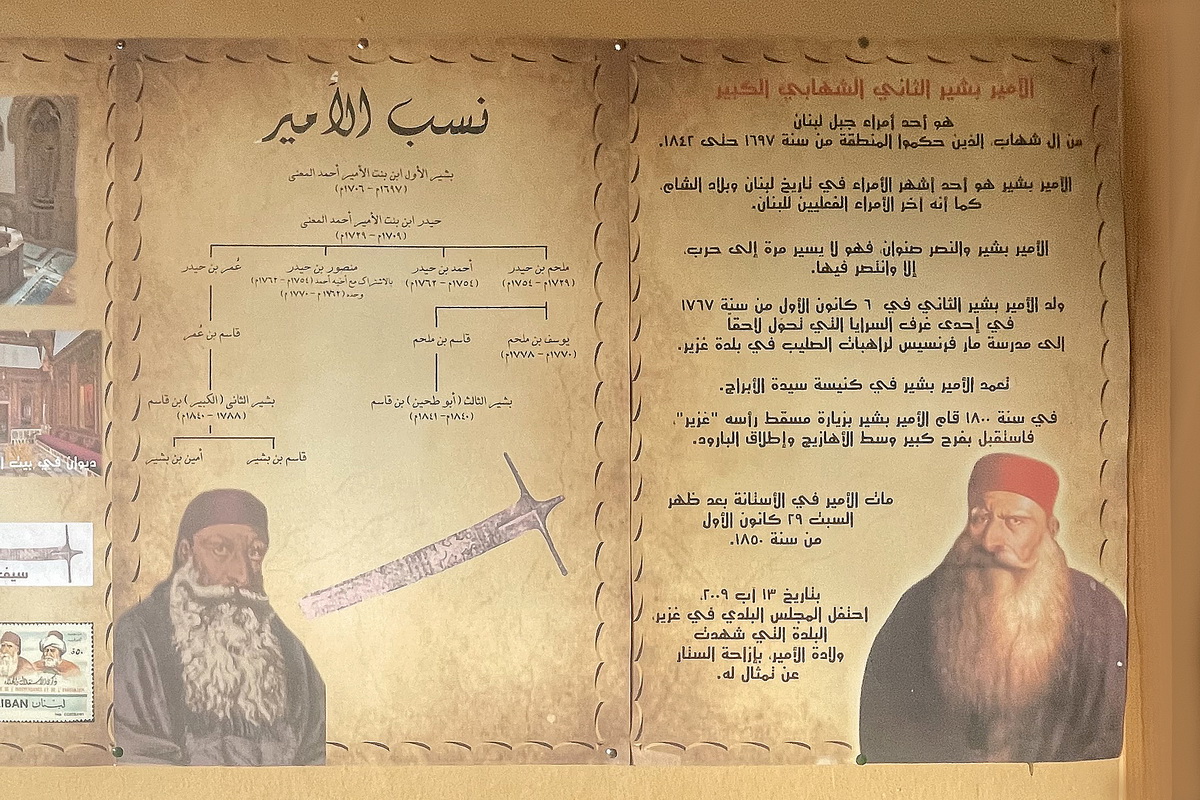 الأمير بشير الثاني الشهابي الكبير
هو أحد أمراء جبل لبنان
من آل شهاب، الذين حكموا المنطقة من سنة ١٦٩٧ حتى ١٨٤٢.
الأمير بشير هو أحد أشهر الأمراء في تاريخ لبنان وبلاد الشام،
كما أنه آخر الأمراء الفعليين للبنان.
الأمير بشير والنصر صنوان، فهو لا يسير مرة إلى حرب،
إلا وانتصر فيها.
ولد الأمير بشير الثاني في ٦ كانون الأول من سنة ١٧٦٧
في إحدى غرف السرايا التي تحوّل لاحقاً
إلى مدرسة مار فرنسيس لراهبات الصليب في بلدة غزير.
تعمد الأمير بشير في كنيسة سيدة الأبراج.
في سنة ١٨٠٠ قام الأمير بشير بزيارة مسقط رأسه "غزير"،
فاستقبل بفرح كبير وسط الأهازيج وإطلاق البارود.
مات الأمير في الأستانة بعد ظهر
السبت ٢٩ كانون الأول
من سنة ١٨٥٠.
بتاريخ ١٣ آب ٢٠٠٩،
احتفل المجلس البلدي في غزير،
البلدة التي شهدت
ولادة الأمير، بإزاحة الستار
عن تمثال له.
نسب الأمير
بشير الأول ابن بنت الأمير أحمد المعنى
(١٦٩٧م – ١٧٠٦م)
حيدر ابن بنت الأمير أحمد المعنى
(١٧٠٩م – ١٧٢٩م)
ملحم بن حيدر
(١٧٢٩م – ١٧٥٤م)
أحمد بن حيدر
(١٧٥٤م – ١٧٦٢م)
منصور بن حيدر
بالاشتراك مع أخيه أحمد (١٧٥٤م – ١٧٦٢م)
وحده (١٧٦٢م – ١٧٧٠م)
عُمر بن حيدر
يوسف بن ملحم
(١٧٧٠م – ١٧٧٨م)
قاسم بن ملحم
قاسم بن عُمر
بشير الثالث (أبو طحين) بن قاسم
(١٨٤٠م – ١٨٤١م)
بشير الثانى (الكبير) بن قاسم
(١٧٨٨ – ١٨٤٠م)
قاسم بن بشير
أمين بن بشير
ديوان في بيت
سيف
٥٠
لبنان LIBAN